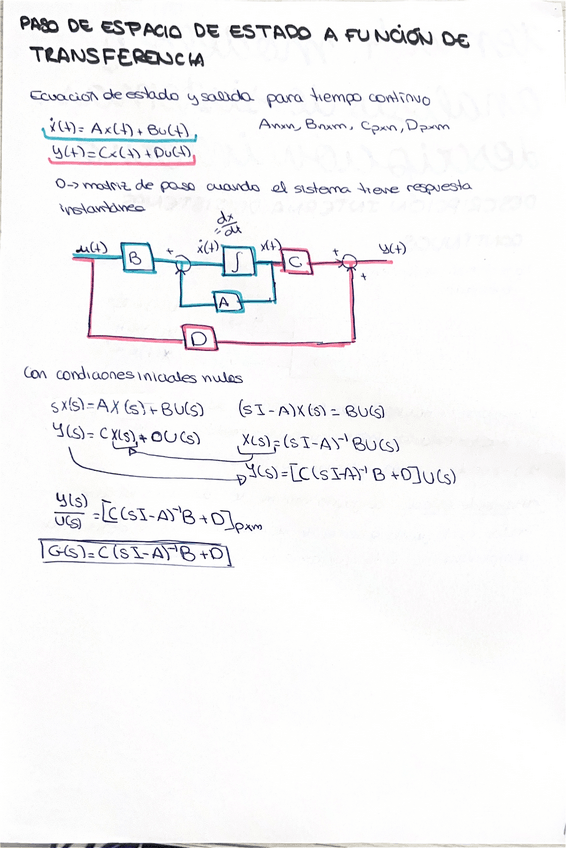 PASO DE ESPACIO DE ESTADO A FUNCIÓN DE
TRANSFERENCIA
Ecuación de estado y salida para tiempo continuo
ẋ(t)=Ax(t)+Bu(t)
Anxn, Bnxm, Cpxn, Dpxm
y(t)=Cx(t)+Du(t)
D-> matriz de paso cuando el sistema tiene respuesta
instantánea
= dx/dt
u(t) B + ẋ(t) ∫ x(t) C + y(t)
+
A
D
Con condiciones iniciales nulas
sX(s)=AX(s)+BU(s) (sI-A)X(s)=BU(s)
Y(s)=CX(s)+DU(s) X(s)=(sI-A)⁻¹BU(s)
Y(s)=[C(sI-A)⁻¹B+D]U(s)
Y(s)/U(s)=[C(sI-A)⁻¹B+D]pxm
G(s)=C(sI-A)⁻¹B+D